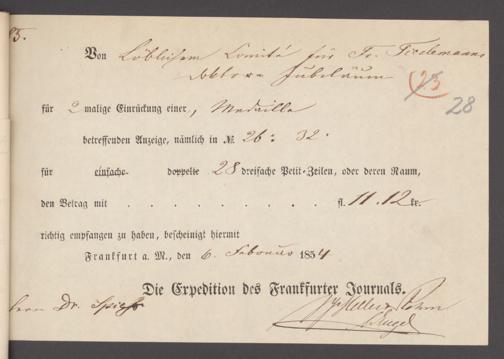 85.
Von Löblichem Comité für Fr. Tiedemanns
Doktor Jubiläum
(25)
28
für 2 malige Einrückung einer, Medaille
betreffenden Anzeige, nämlich in № 26 : 32.
für einfache doppelte 28 dreifache Petit-Zeilen, oder deren Raum,
den Betrag mit . . . . . . . . . fl. 11.12 kr.
richtig empfangen zu haben, bescheinigt hiermit
Frankfurt a. M., den 6. Februar 1854
Die Expedition des Frankfurter Journals.
Herrn Dr. Spieß